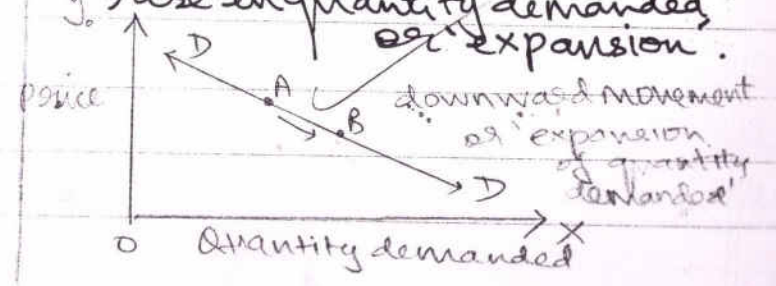 Rise in quantity demanded
or 'expansion'.
y
D
A
price
downward movement
B
or 'expansion
of quantity
demanded'
D
O
X
Quantity demanded